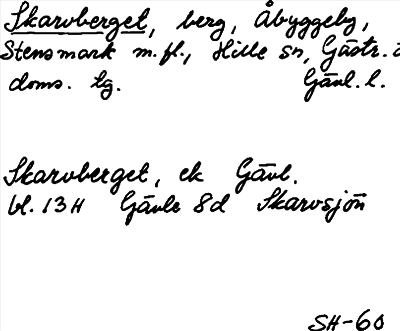 Skarvberget, berg, Åbyggeby,
Stensmark m.fl., Hille sn, Gästr. ö
doms. tg. Gävl. l.
Skarvberget, ek Gävl.
bl. 13H Gävle 8d Skarvsjön
SH-60